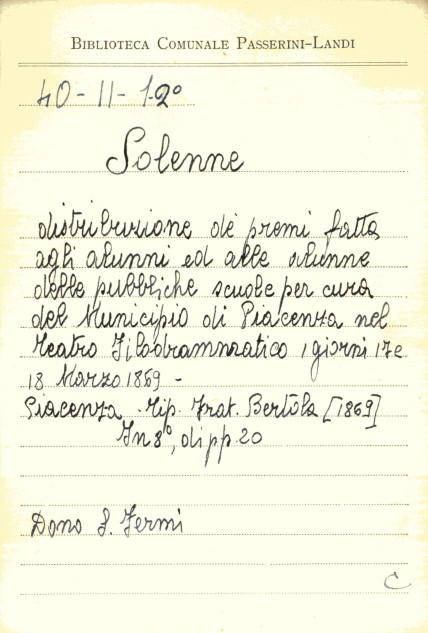 BIBLIOTECA COMUNALE PASSERINI-LANDI
40-II-1.2º
Solenne
distribuzione de' premi fatta
agli alunni ed alle alunne
delle pubbliche scuole per cura
del Municipio di Piacenza nel
Teatro Filodrammatico i giorni 17 e
18 Marzo 1869 -
Piacenza. Tip. Frat. Bertola [1869]
In 8º, di pp. 20
Dono S. Fermi
C